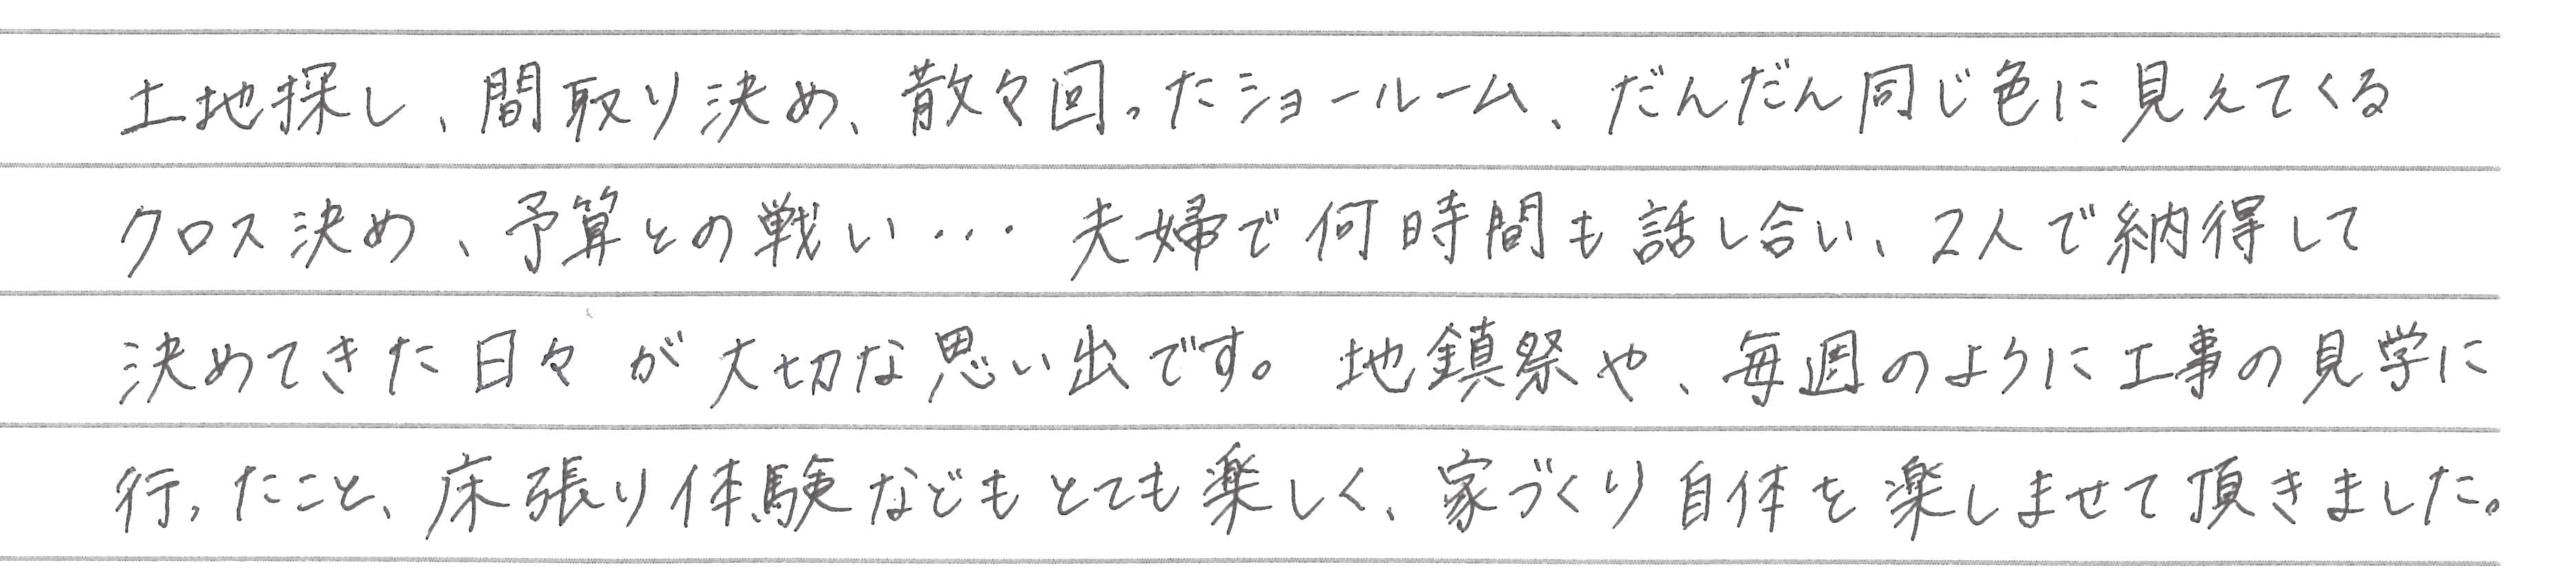 土地探し、間取り決め、散々回ったショールーム、だんだん同じ色に見えてくる
クロス決め、予算との戦い… 夫婦で何時間も話し合い、2人で納得して
決めてきた日々が大切な思い出です。地鎮祭や、毎週のように工事の見学に
行ったこと、床張り体験などもとても楽しく、家づくり自体を楽しませて頂きました。